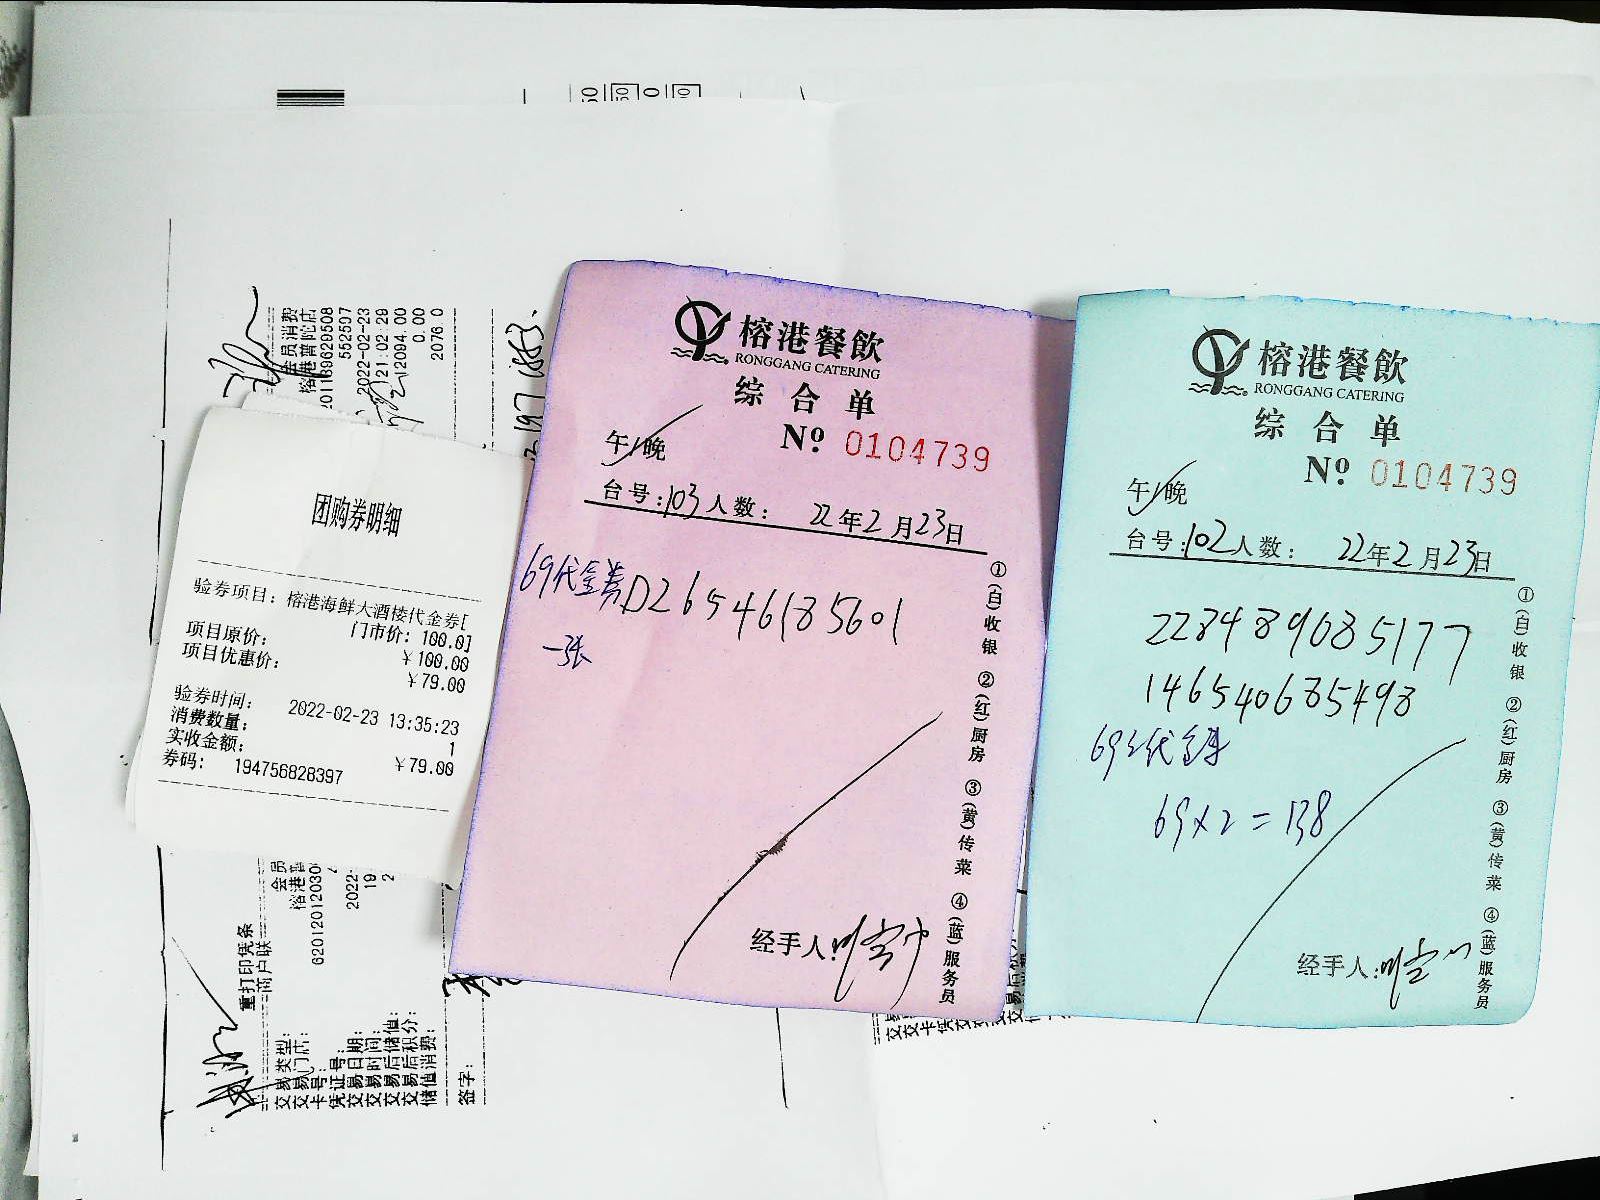 会员消费
榕港普陀店
201169620508
552507
2022-02-23
21:02:29
2094.00
0.00
2076 0
团购券明细
验券项目：榕港海鲜大酒楼代金券[
门市价：100.0]
项目原价： ￥100.00
项目优惠价： ￥79.00
验券时间： 2022-02-23 13:35:23
消费数量： 1
实收金额： ￥79.00
券码： 194756828397
重打印凭条
商户联
交易类型： 会员
交易门店：
卡号： 6201201203
凭证号：
交易日期： 2022-
交易时间： 19
交易后储值： 2
交易后积分：
储值消费：
签字：
榕港餐飲
RONGGANG CATERING
综合单
午/晚 Nº 0104739
台号：103人数： 22年2月23日
69代金券D26546185601
一张
①(白)收银 ②(红)厨房 ③(黄)传菜 ④(蓝)服务员
经手人：
榕港餐飲
RONGGANG CATERING
综合单
Nº 0104739
午/晚
台号：102人数： 22年2月23日
228489085177
146540685498
69×2=138
①(白)收银 ②(红)厨房 ③(黄)传菜 ④(蓝)服务员
经手人：